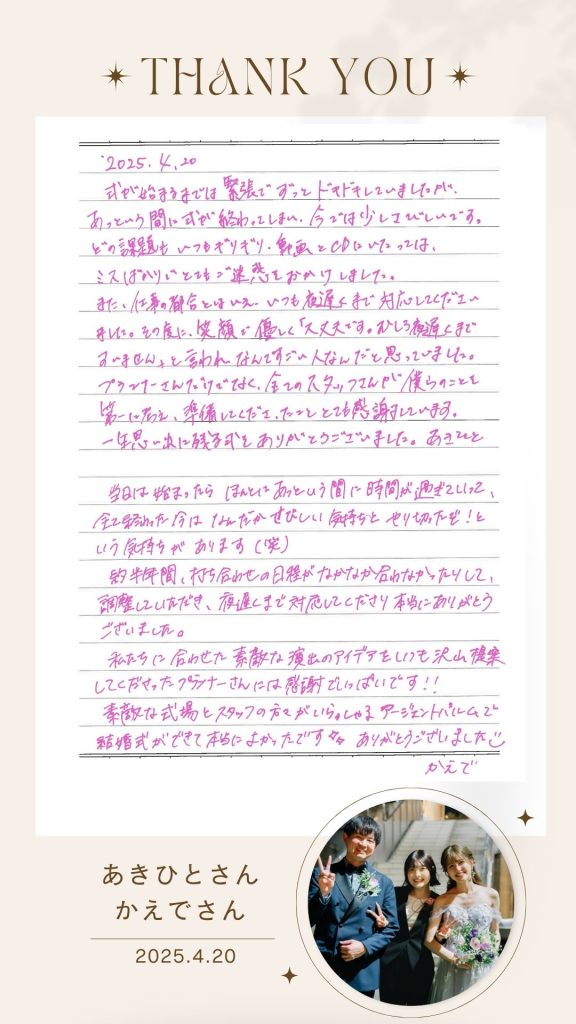 THANK YOU
2025.4.20
式が始まるまでは緊張でずっとドキドキしていましたが、
あっという間に式が終わってしまい、今では少しさびしいです。
どの課題もいつもギリギリ、動画とCDにいたっては、
ミスばかりでとてもご迷惑をおかけしました。
また、仕事の都合とはいえ、いつも夜遅くまで対応してください
ました。その度に、笑顔で優しく「大丈夫です。むしろ夜遅くまで
すいません」と言われ、なんてすごい人なんだと思っていました。
プランナーさんだけでなく、全てのスタッフさんが僕らのことを
第一に考え、準備してくださったこと、とても感謝しています。
一生思い出に残る式をありがとうございました。あきひと
当日は始まったらほんとにあっという間に時間が過ぎていって、
全て終わった今はなんだかさびしい気持ちとやり切ったぞ!と
いう気持ちがあります(笑)
約半年間、打ち合わせの日程がなかなか合わなかったりして、
調整していただき、夜遅くまで対応してくださり本当にありがとう
ございました。
私たちに合わせた素敵な演出のアイデアをいつも沢山提案
してくださったプランナーさんには感謝でいっぱいです!!
素敵な式場とスタッフの方々がいらっしゃるアージェントパルムで
結婚式ができて本当によかったです ありがとうございました
かえで
あきひとさん
かえでさん
2025.4.20